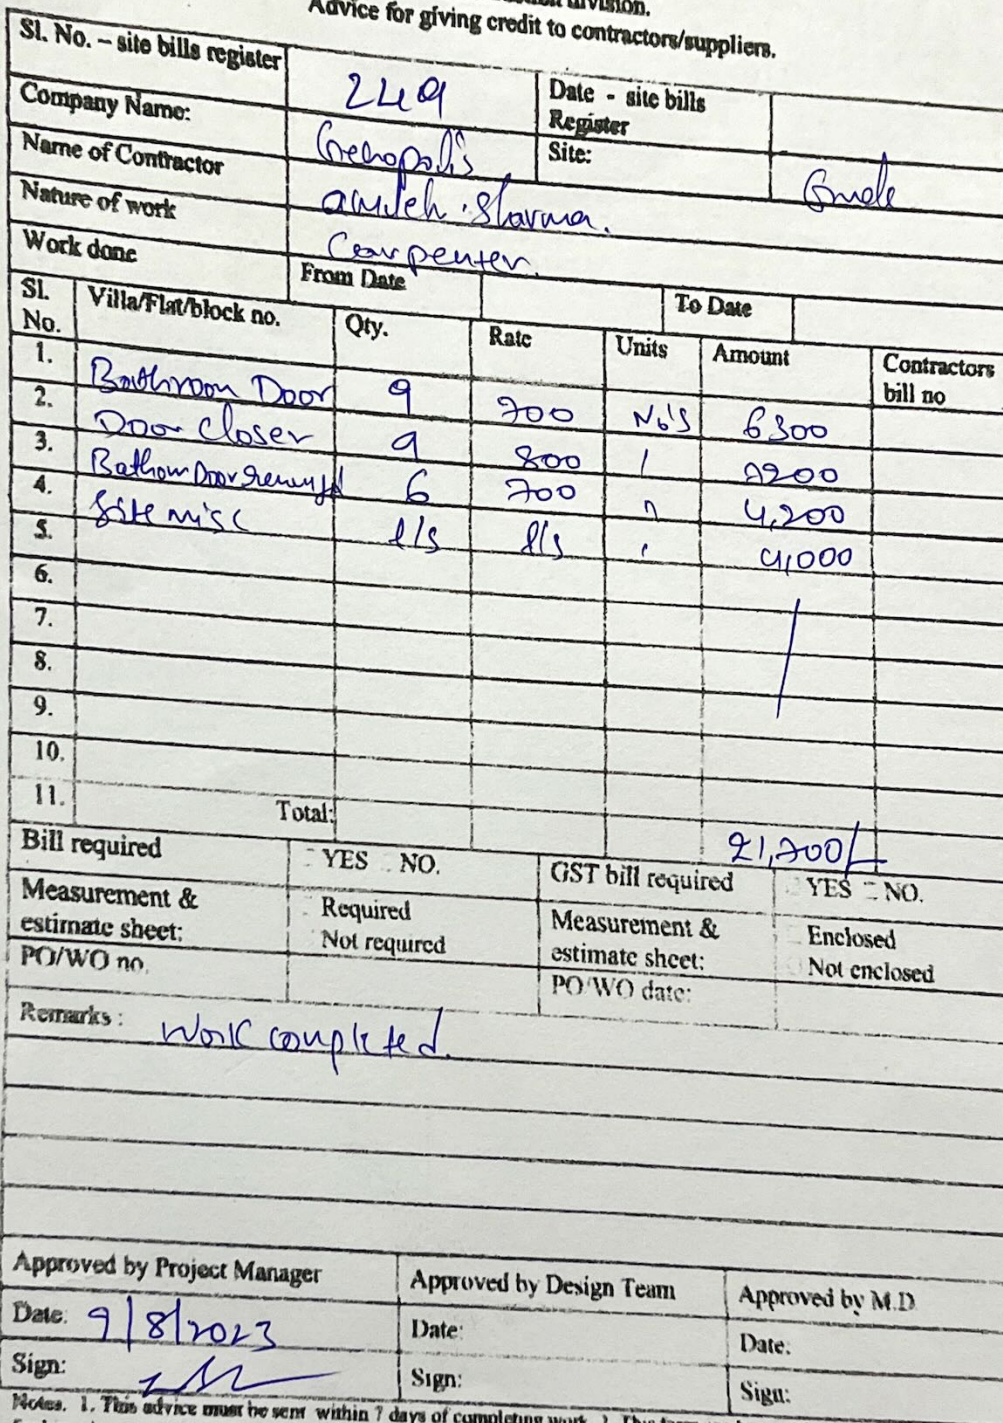 Advice for giving credit to contractors/suppliers.
Sl. No. – site bills register 249 Date - site bills Register
Company Name: Genopolis Site:
Name of Contractor Sharma.
Nature of work Carpenter.
Work done From Date To Date
Sl. No. Villa/Flat/block no. Qty. Rate Units Amount Contractors bill no
1. Bathroon Door 9 700 No's 6300
2. Door closer 9 800 7200
3. Door 6 700 " 4,200
4. Site misc l/s l/s 4,000
5.
6.
7.
8.
9.
10.
11. Total: 21,700/-
Bill required YES NO. GST bill required YES NO.
Measurement & estimate sheet: Required Not required Measurement & estimate sheet: Enclosed Not enclosed
PO/WO no. PO/WO date:
Remarks : Work completed.
Approved by Project Manager Approved by Design Team Approved by M.D
Date: 9/8/2023 Date: Date:
Sign: Sign: Sign:
Notes. 1. This advice must be sent within 7 days of completing work.